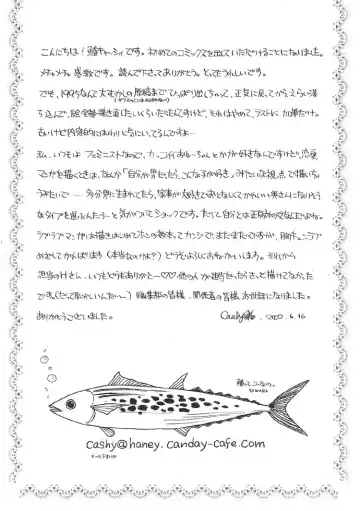 こんにちは！鰆キャーシィです。初めてのコミックスを出していただけることになりました。
メチャメチャ感激です。読んで下さってありがとう。とってもうれしいです。
でも、1995なんて大むかしの原稿まで ひっぱり出しちゃって、正気に戻ってからえらい落
ち込んで、絵全部描き直したいくらいだったんですけど、それはやめて、ラストに加筆だけ。
古いけど内容的にはわりとらいにしてるんですよ…
私、いつもは フェミニストなので、カッコイイおねーちゃんとかが好きなんですけど、恋愛
マンガを描くときは、なんか「自分が男だったら、こんな子が好き」みたいな視点で描いちゃ
うみたいで……多分男に生まれてたら、家事が大好きでおとなしくてかわいい奥さんになりそう
なタイプを選ぶんだろーと気がついてショックです。だって自分とは正反対の女なんだもん。
ラブラブマンガは描きはじめてホンの数本ってカンジで、まだまだですが、胸キュンラブ
めざしてがんばります（本当なのかよ？）どうぞよろしくおねがいします。それから
担当のHさん、いつもどうもありがとー♡♡他の人が担当だったら、きっと描けてなかった
です（だって恥かしいんだもん～）編集部の皆様、関係者の皆様、お世話になりました。
ありがとうございました。
Cashy 2000.6.16
鰆ってこんなの。
SAWARA
cashy@honey.canday-cafe.com